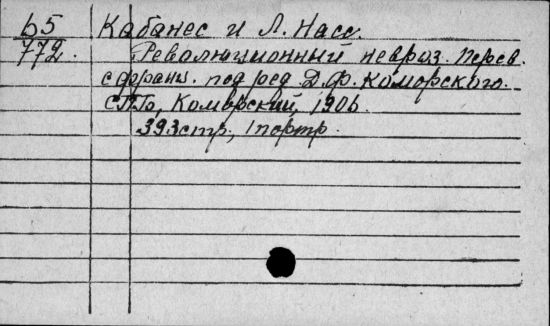 Б5 Кабанес и Л. Насс.
772. Революционный невроз. Перев.
с франц. под ред Д.Ф. Коморского.
СПб, Коморский, 1906.
393стр., 1 портр.